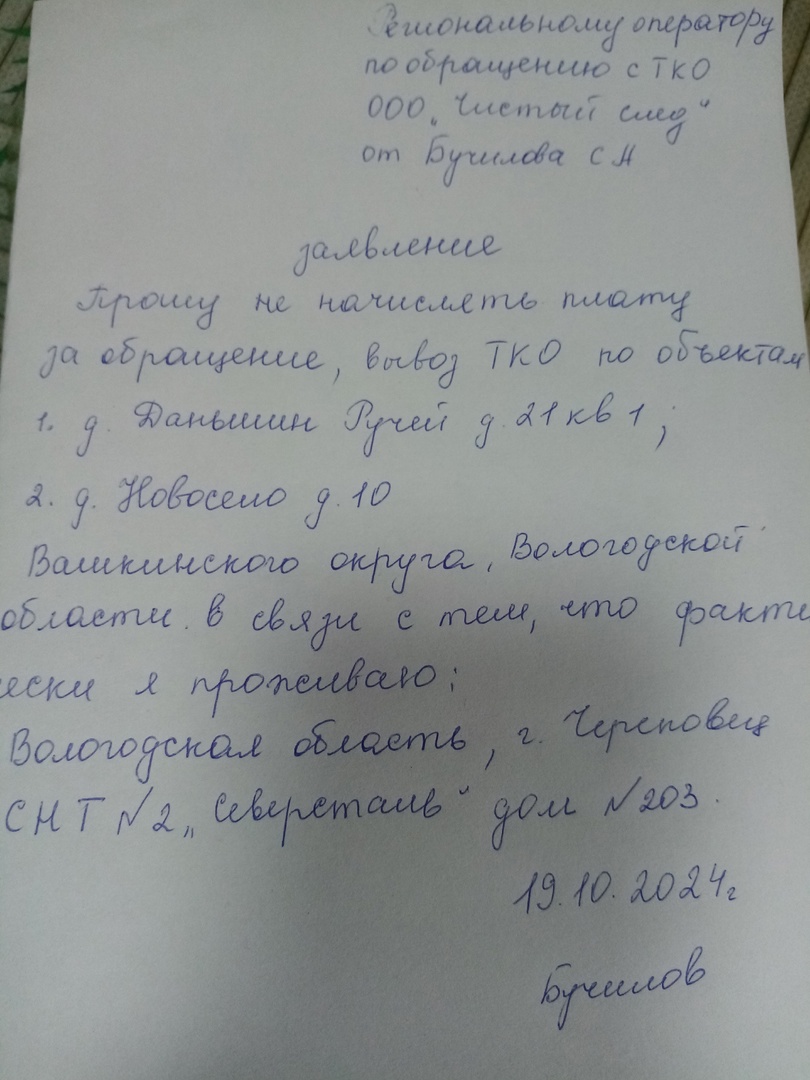 Региональному оператору
по обращению с ТКО
ООО „Чистый след“
от Бучилова С Н
заявление
Прошу не начислять плату
за обращение, вывоз ТКО по объектам
1. д. Даньшин Ручей д. 21 кв 1;
2. д. Новосело д. 10
Вашкинского округа, Вологодской
области. в связи с тем, что факти
чески я проживаю:
Вологодская область, г. Череповец
СНТ №2 „Северсталь“ дом №203.
19.10.2024г
Бучилов